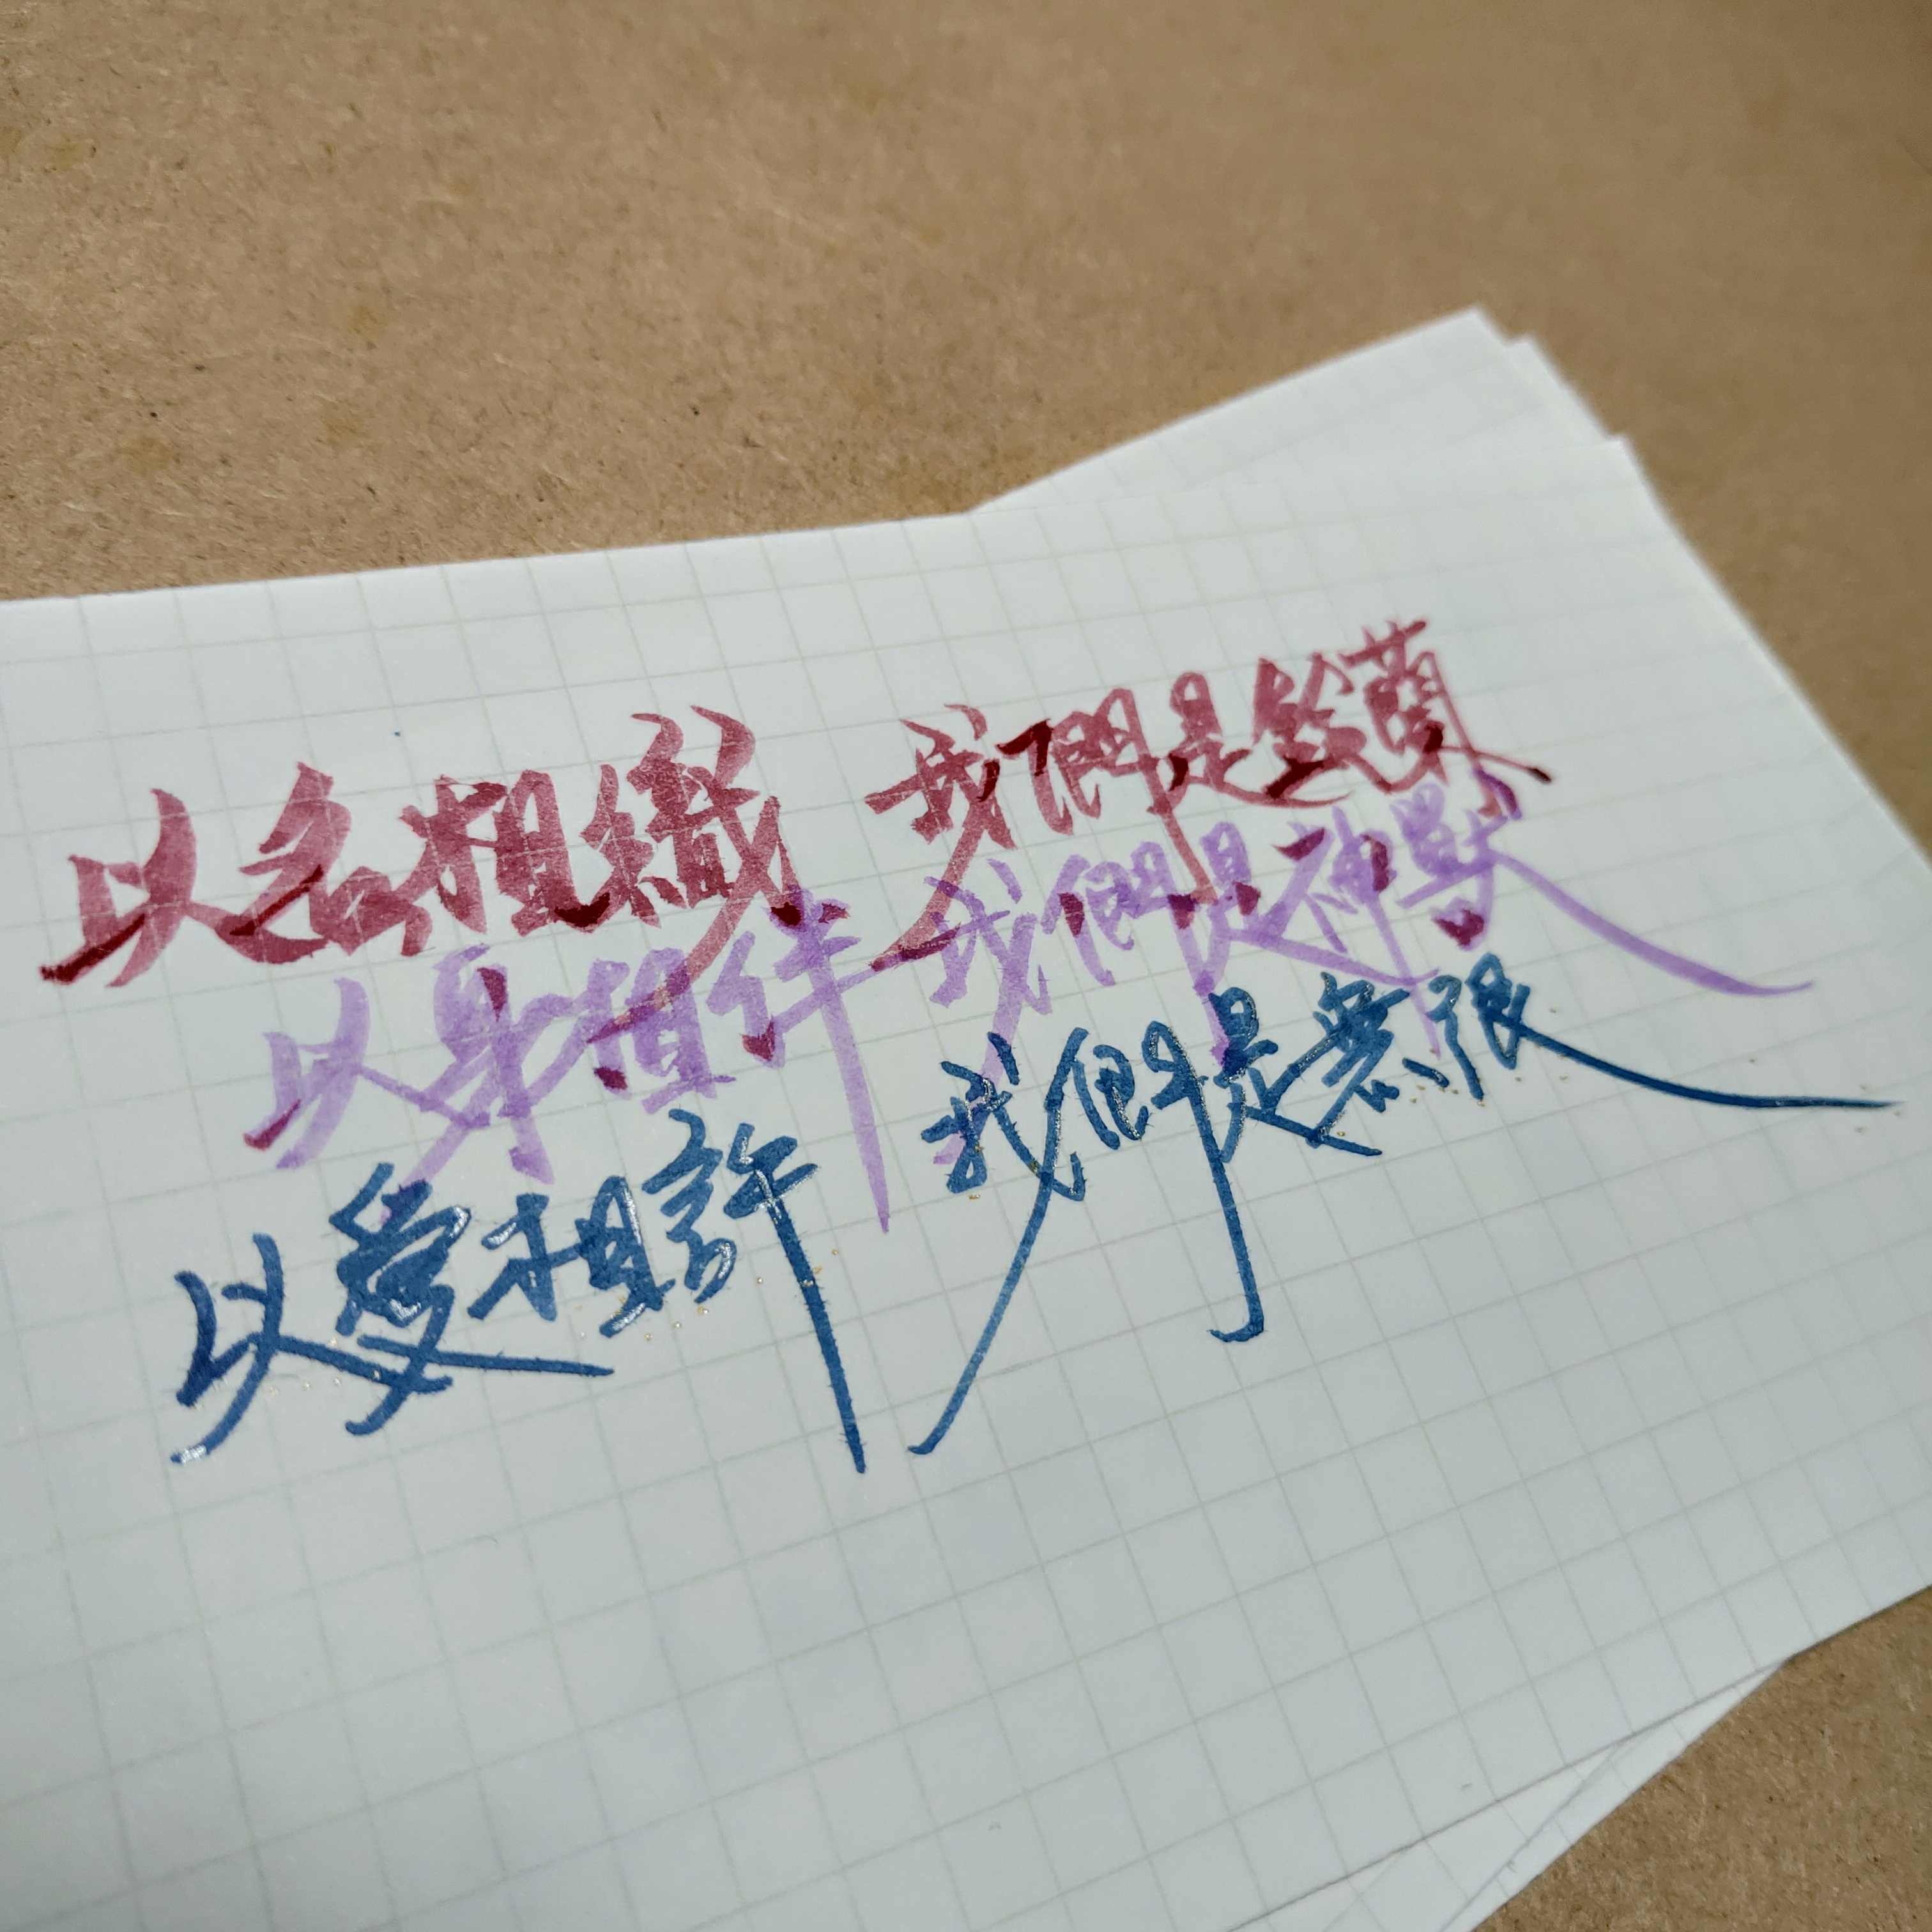 以名相織 我們是鈴蘭
以身相伴 我們是神獸
以愛相許 我們是無限